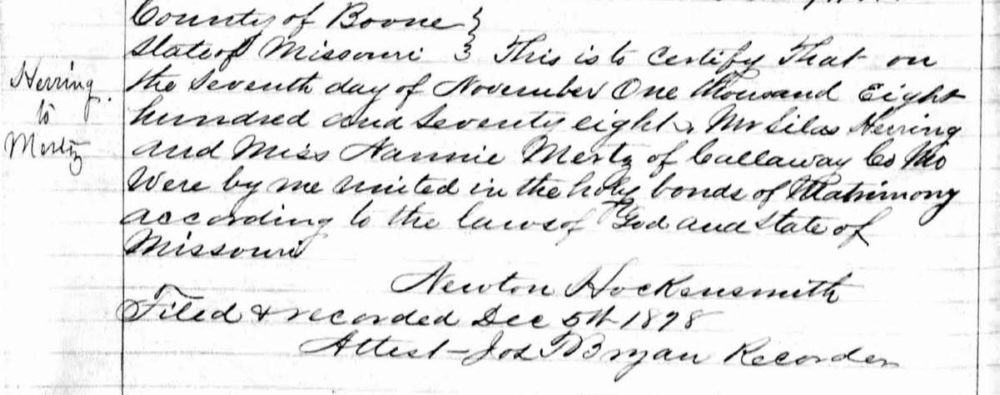 County of Boone }
State of Missouri } This is to Certify That on
Herring
to
Mertz
the Seventh day of November One thousand Eight
hundred and Seventy eight, Mr Silas Herring
and Miss Nannie Mertz of Callaway Co Mo
Were by me united in the holy bonds of Matrimony
according to the laws of God and State of
Missouri
Newton Hockensmith
Filed & recorded Dec 5th 1878
Attest - Jos T Bryan Recorder